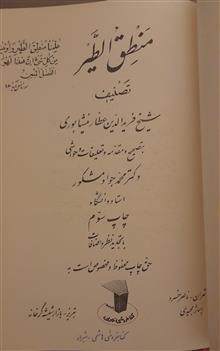 منطق الطّیر
تصنیف
شیخ فرید الدین عطار نیشابوری
بتصحیح و مقدمه و تعلیقات و حواشی
دکتر محمد جواد مشکور
استاد دانشگاه
چاپ سوّم
با تجدید نظر و اضافات
حق چاپ محفوظ و مخصوص است به
تهران - ناصر خسرو
تبریز - بازار شیشه‌گرخانه